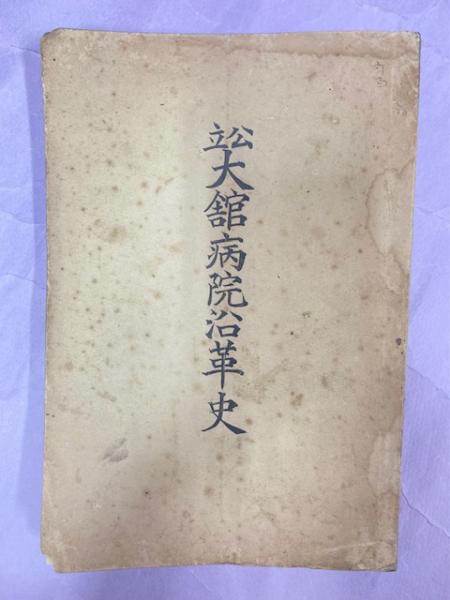 公立大舘病院沿革史